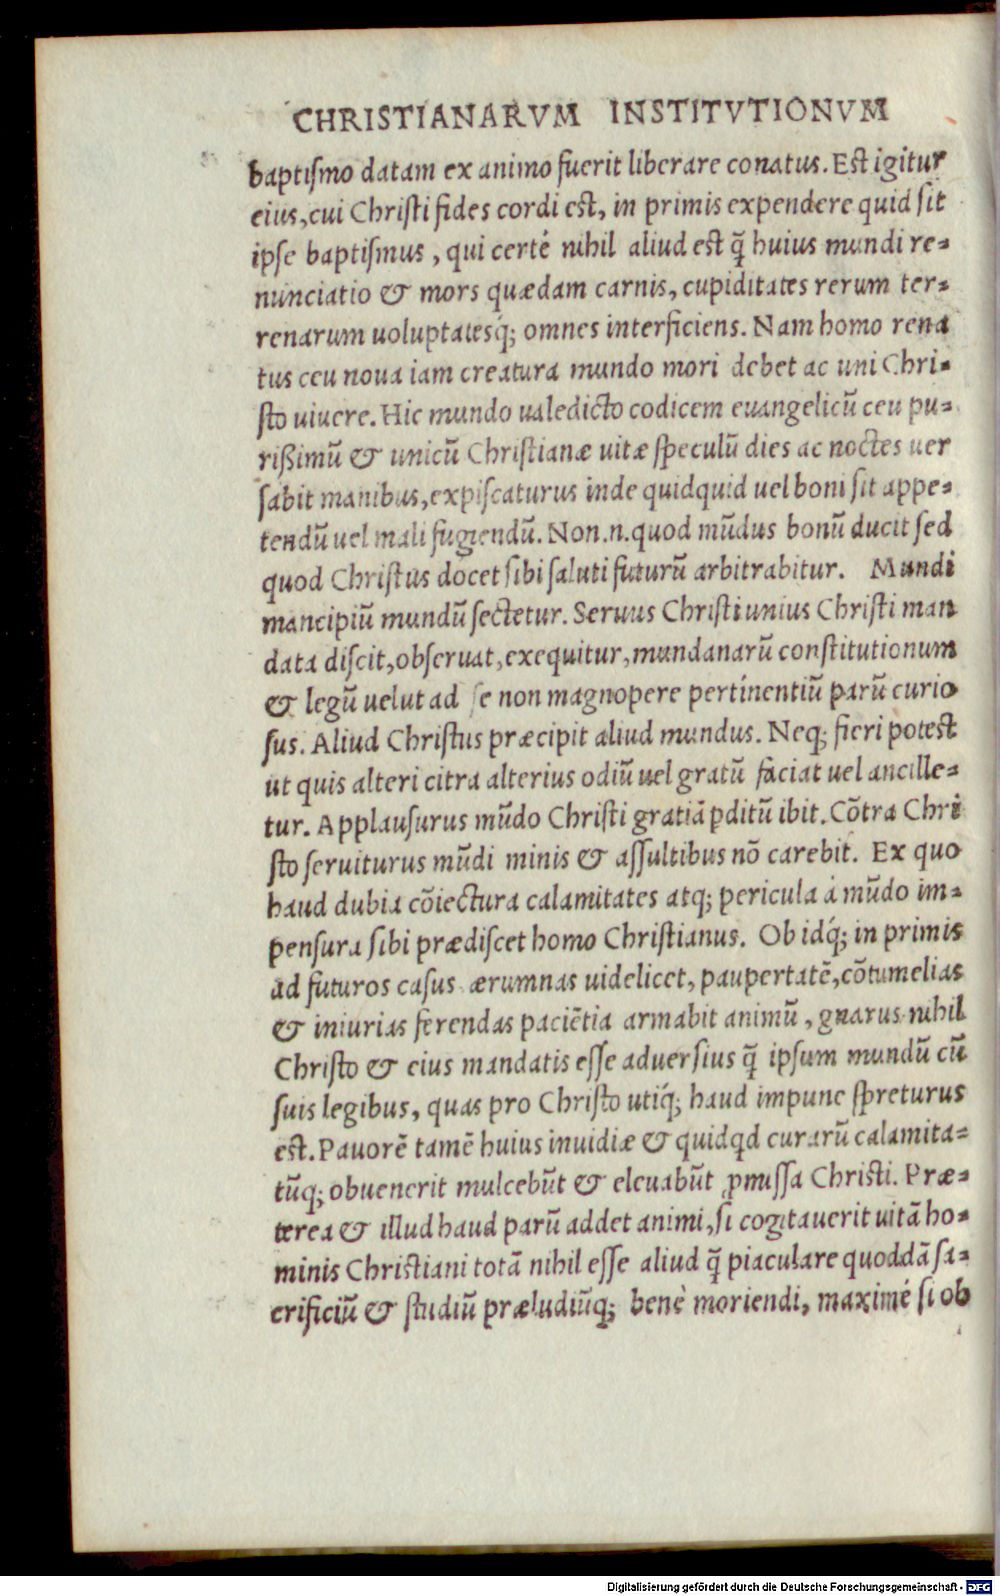 CHRISTIANARVM INSTITVTIONVM
baptiſmo datam ex animo fuerit liberare conatus. Eſt igitur
eius, cui Chriſti fides cordi eſt, in primis expendere quid ſit
ipſe baptiſmus, qui certé nihil aliud eſt q̃ huius mundi re-
nunciatio & mors quædam carnis, cupiditates rerum ter-
renarum uoluptatesq́; omnes interficiens. Nam homo rena
tus ceu noua iam creatura mundo mori debet ac uni Chri-
ſto uiuere. Hic mundo ualedicto codicem euangelicũ ceu pu-
rißimũ & unicũ Chriſtianæ uitæ ſpeculũ dies ac noctes uer
ſabit manibus, expiſcaturus inde quidquid uel boni ſit appe-
tendũ uel mali fugiendũ. Non.n.quod mũdus bonũ ducit ſed
quod Chriſtus docet ſibi ſaluti futurũ arbitrabitur. Mundi
mancipiũ mundũ ſectetur. Seruus Chriſti unius Chriſti man
data diſcit, obſeruat, exequitur, mundanarũ conſtitutionum
& legũ uelut ad ſe non magnopere pertinentiũ parũ curio
ſus. Aliud Chriſtus præcipit aliud mundus. Neq; fieri poteſt
ut quis alteri citra alterius odiũ uel gratũ faciat uel ancille-
tur. Applauſurus mũdo Chriſti gratiã ꝑditũ ibit. Cõtra Chri
ſto ſeruiturus mũdi minis & aſſultibus nõ carebit. Ex quo
haud dubia cõiectura calamitates atq; pericula à mũdo im-
penſura ſibi prædiſcet homo Chriſtianus. Ob idq́; in primis
ad futuros caſus ærumnas uidelicet, paupertatẽ, cõtumelias
& iniurias ferendas paciẽtia armabit animũ, gnarus nihil
Chriſto & eius mandatis eſſe aduerſius q̃ ipſum mundũ cũ
ſuis legibus, quas pro Chriſto utiq́; haud impune ſpreturus
eſt. Pauorẽ tamẽ huius inuidiæ & quidqd curarũ calamita-
tũq; obuenerit mulcebũt & eleuabũt ꝓmiſſa Chriſti. Præ-
terea & illud haud parũ addet animi, ſi cogitauerit uitã ho-
minis Chriſtiani totã nihil eſſe aliud q̃ piaculare quoddã ſa-
crificiũ & ſtudiũ præludiũq; benè moriendi, maximé ſi ob
Digitalisierung gefördert durch die Deutsche Forschungsgemeinschaft - DFG